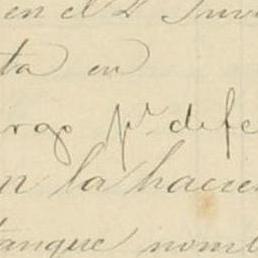 en el
ta en
argo pr. defe
en la hacien
tanque nomb